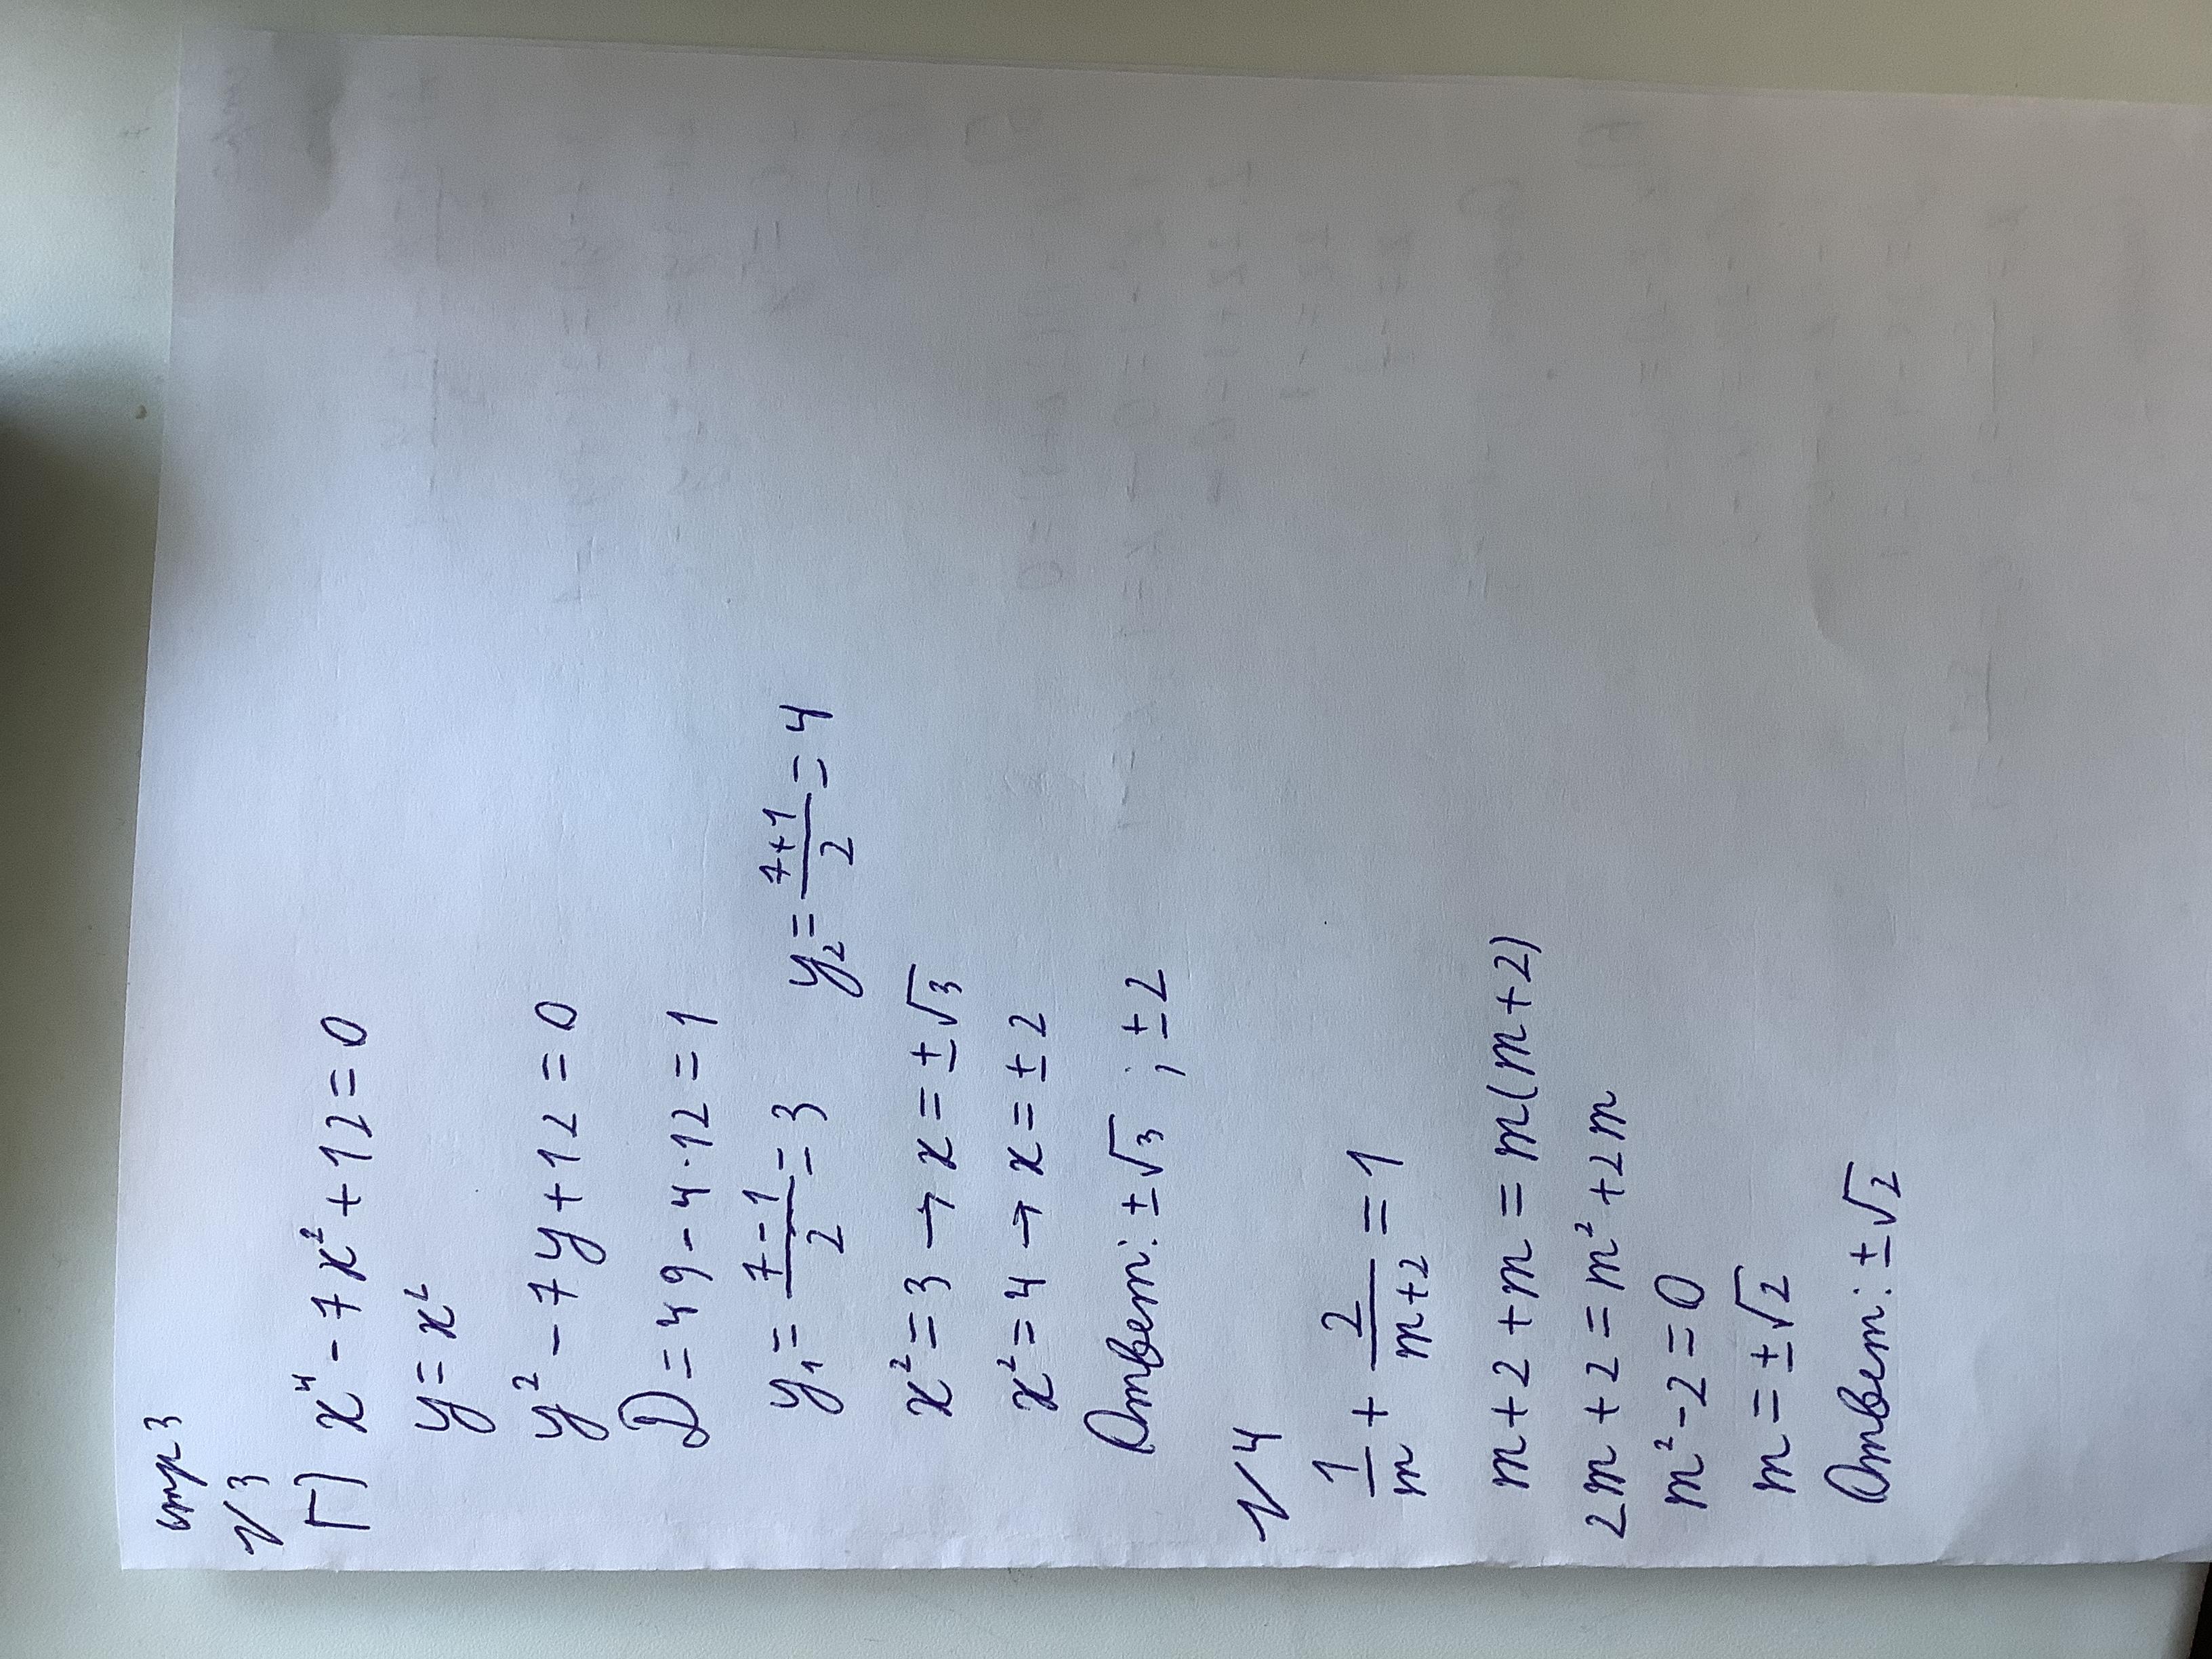 стр 3
№3
Г) x⁴ - 7x² + 12 = 0
y = x²
y² - 7y + 12 = 0
D = 49 - 4·12 = 1
y₁ = (7-1)/2 = 3 y₂ = (7+1)/2 = 4
x² = 3 → x = ±√3
x² = 4 → x = ±2
Ответ: ±√3 ; ±2
№4
1/m + 2/(m+2) = 1
m + 2 + m = m(m+2)
2m + 2 = m² + 2m
m² - 2 = 0
m = ±√2
Ответ: ±√2